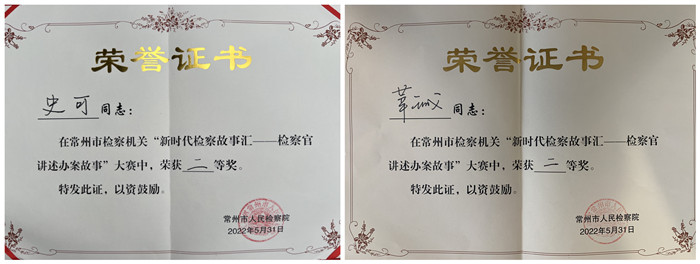 荣誉证书
史可 同志：
在常州市检察机关“新时代检察故事汇——检察官
讲述办案故事”大赛中，荣获 二 等奖。
特发此证，以资鼓励。
常州市人民检察院
2022年5月31日
荣誉证书
同志：
在常州市检察机关“新时代检察故事汇——检察官
讲述办案故事”大赛中，荣获 二 等奖。
特发此证，以资鼓励。
常州市人民检察院
2022年5月31日